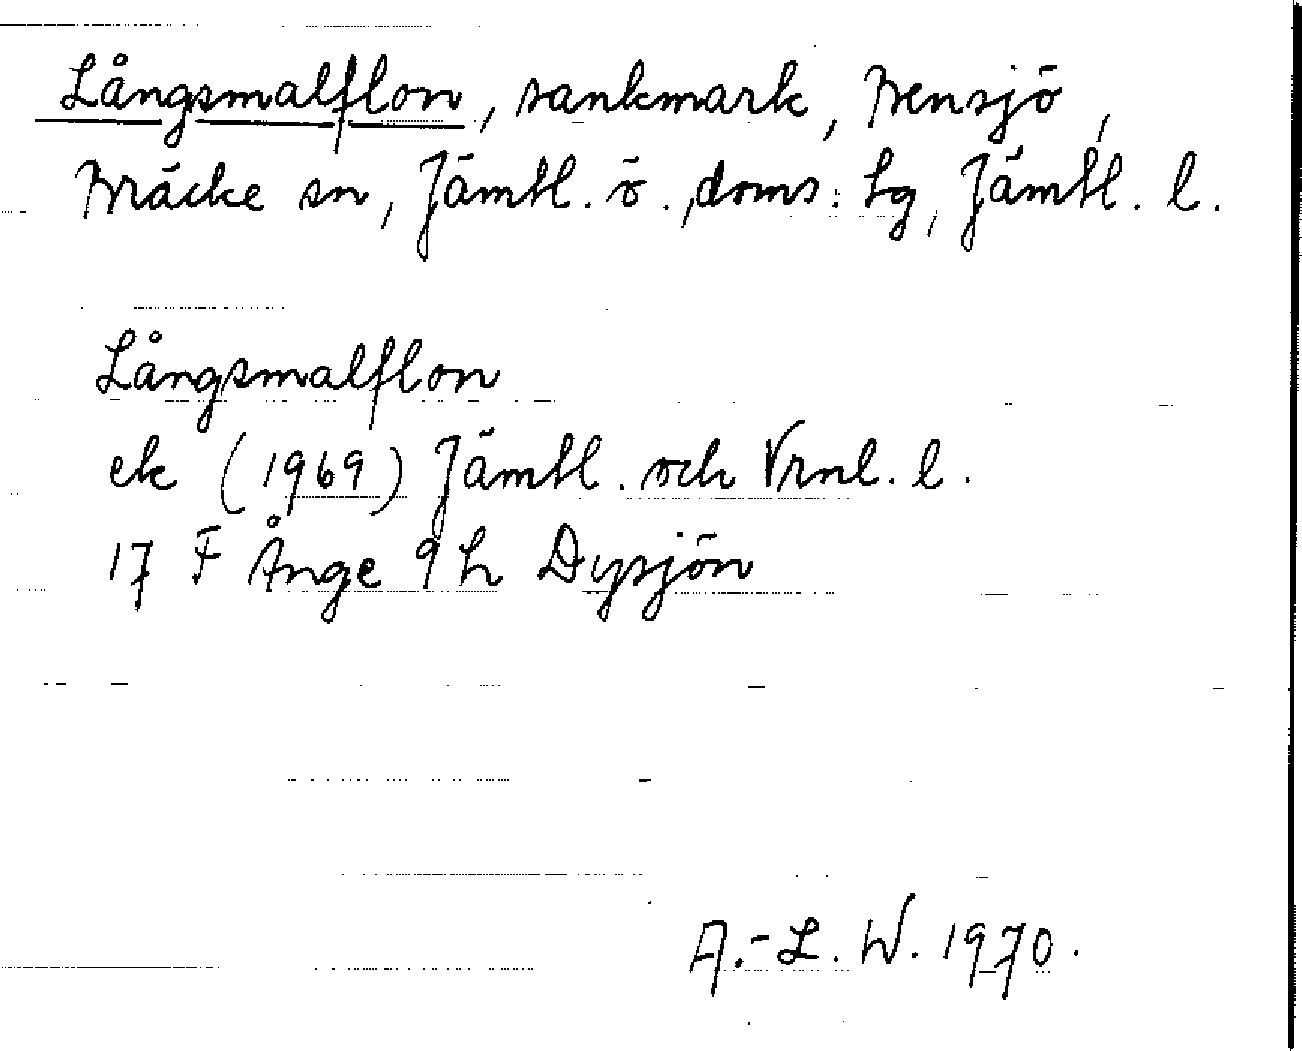 Långsmalflon, sankmark, Bensjö,
Bräcke sn, Jämtl. ö., doms: lg, Jämtl. l.
Långsmalflon
ek (1969) Jämtl. och Vrnl. l.
17 F Ånge 9 h Dysjön
A.-L. W. 1970.